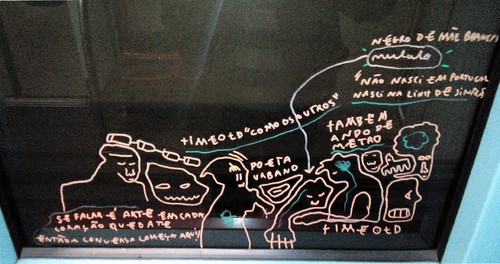 NEGRO DE MÃE BRANCA
mulato
"NÃO NASCI EM PORTUGAL
NASCI NA LINHA DE SINTRA
tIMEOtD "COMO OS OUTROS"
tAMBEM
ANDO DE
MEtRO
POEtA
URBANO
SE FALAR É ARtE EM CADA
CORAÇÃO QUE DAtE
ENtÃO A CONVERSA COMEÇA AQUI
tIMEOtD